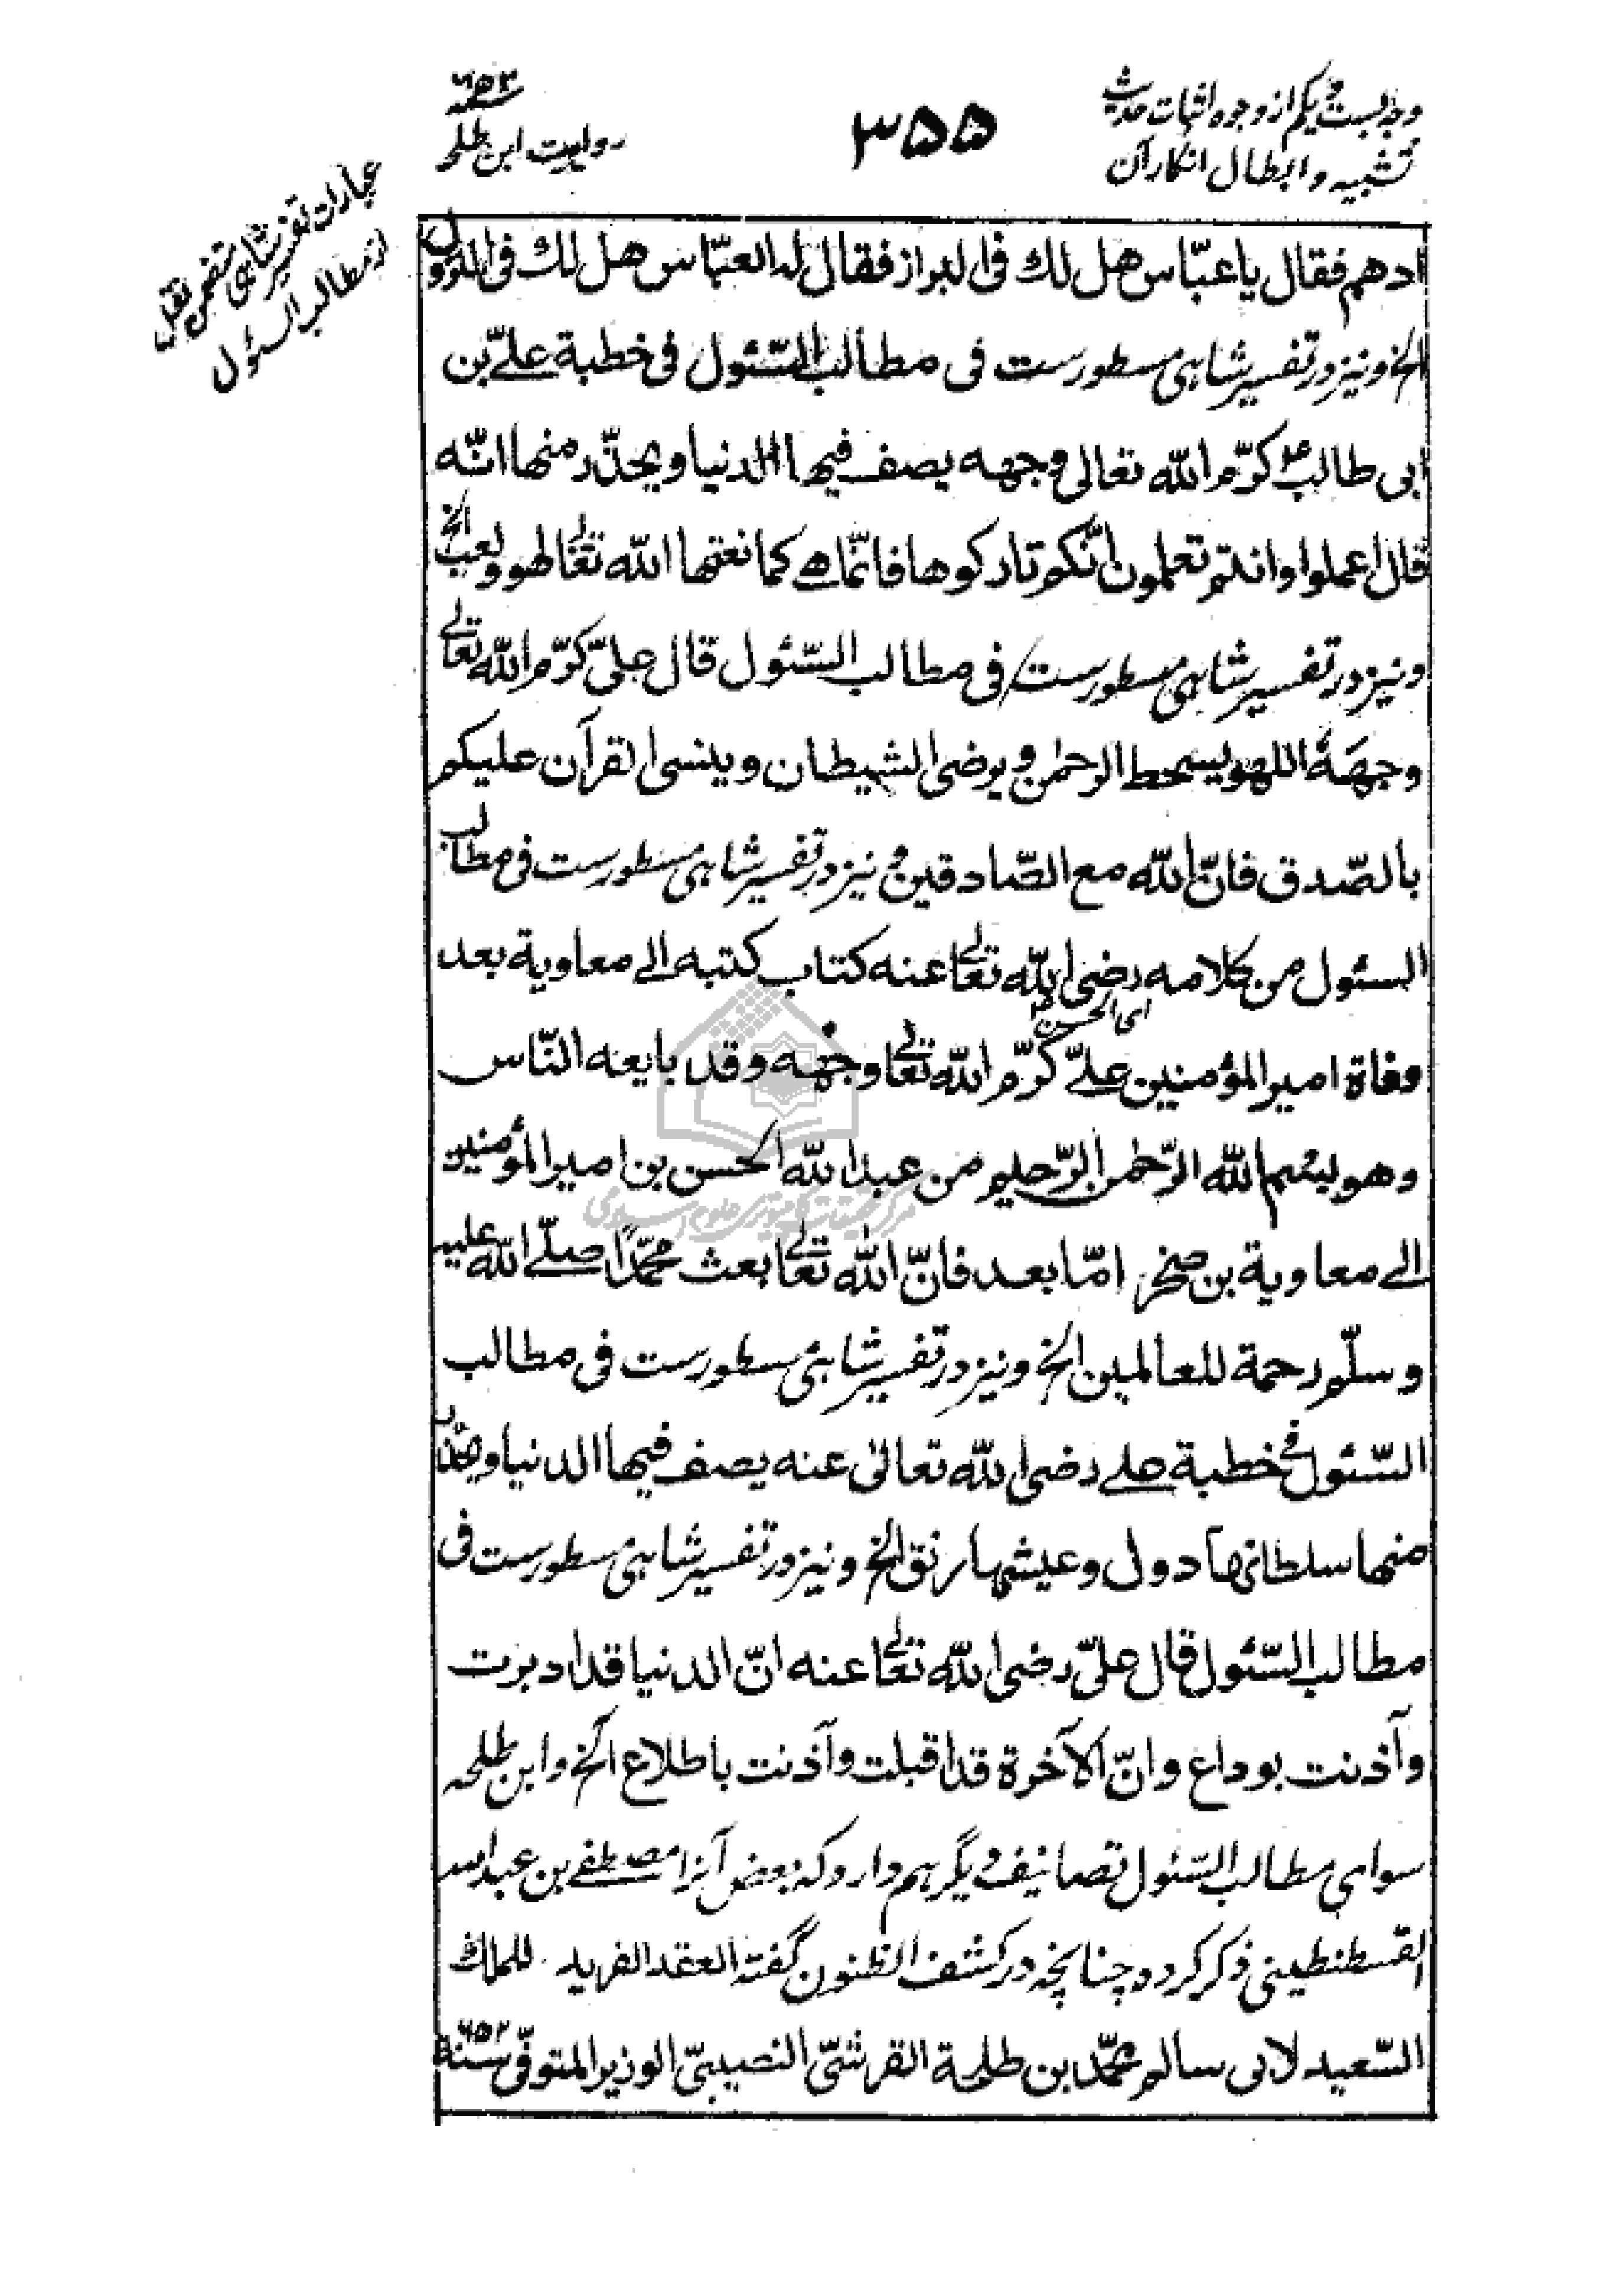 وجه بست و یکم از وجوه اثبات حدیث
تشبیه و ابطال انکار آن
۳۵۵
۶۵۳
روایت ابن طلحه
عبارات تفسیر شاهی متضمن نقل
از مطالب السئول
ادهم فقال یا عبّاس هل لك فی البراز فقال له العبّاس هل لك فی النزول
الخ و نیز در تفسیر شاهی مسطورست فی مطالب السّئول فی خطبة علیّ بن
ابی طالب کرّم الله تعالی وجهه یصف فیها الدنیا و یحذّر منها انّه
قال اعملوا وانتم تعلمون انّکم تارکوها فانّما هی کما نعتها الله تعالی لهو ولعب الخ
و نیز در تفسیر شاهی مسطورست فی مطالب السّئول قال علیّ کرّم الله تعالی
وجهَهُ اللهو یسخط الرحمٰن و یرضی الشیطان و ینسی القرآن علیکم
بالصّدق فانّ الله مع الصّادقین و نیز در تفسیر شاهی مسطورست فی مطالب
السئول من کلامه رضی الله تعالی عنه کتاب کتبه الی معاویة بعد
ای الحسن
وفاة امیر المؤمنین علیّ کرّم الله تعالی وجهه وقد بایعه النّاس
وهو بسم الله الرّحمٰن الرّحیم من عبد الله الحسن بن امیر المؤمنین
الی معاویة بن صخر امّا بعد فانّ الله تعالی بعث محمّدًا صلّی الله علیه
و سلّم رحمة للعالمین الخ و نیز در تفسیر شاهی مسطورست فی مطالب
السّئول فی خطبة علی رضی الله تعالیٰ عنه یصف فیها الدنیا و یحذّر
منها سلطانها دول و عیشها رنق الخ و نیز در تفسیر شاهی مسطورست فی
مطالب السّئول قال علیّ رضی الله تعالی عنه انّ الدنیا قد ادبرت
وآذنت بوداع وانّ الآخرة قد اقبلت وآذنت باطلاع الخ و ابن طلحه
سوای مطالب السّئول تصانیف دیگر هم دارد که بعض آنرا مصطفی بن عبد الله
القسطنطینی ذکر کرده چنانچه در کشف الظنون گفته العقد الفرید للملك
السّعید لابی سالم محمّد بن طلحة القرشیّ النصیبیّ الوزیر المتوفّی سنة ۶۵۲
مرکز تحقیقات کامپیوتری علوم اسلامی